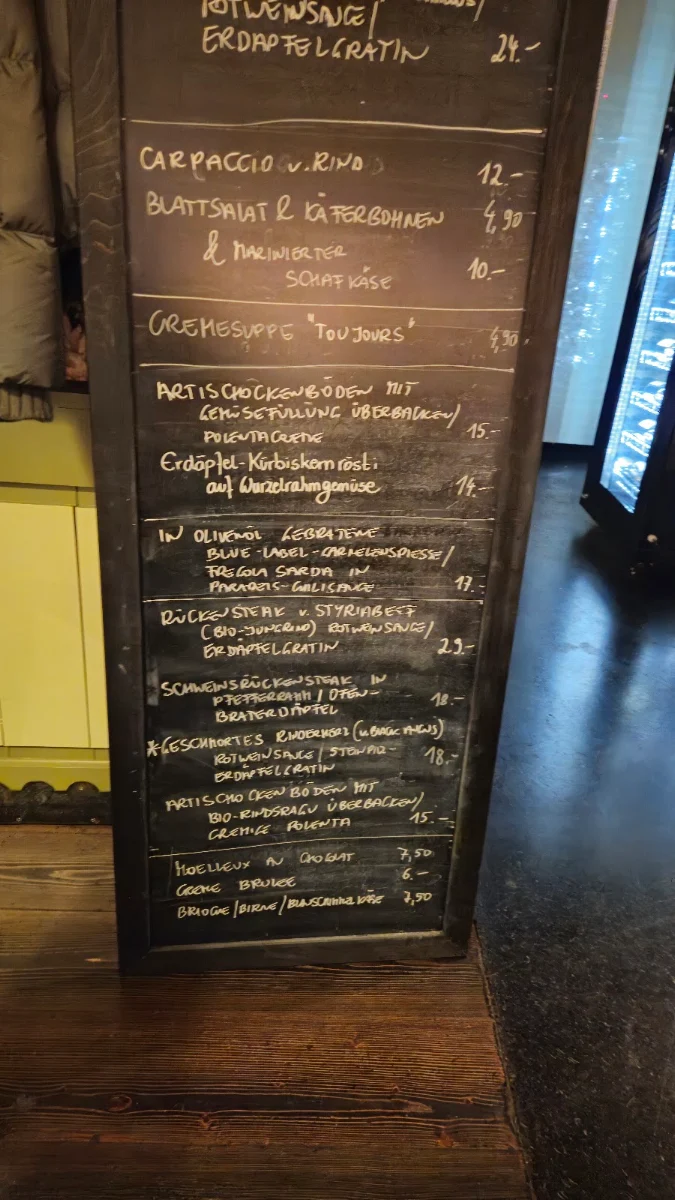 ROTWEINSAUCE/
ERDÄPFELGRATIN 24.-
CARPACCIO v. RIND 12.-
BLATTSALAT & KÄFERBOHNEN 4,90
& MARINIERTER
SCHAFKÄSE 10.-
CREMESUPPE "TOUJOURS" 4,90
ARTISCHOCKENBÖDEN MIT
GEMÜSEFÜLLUNG ÜBERBACKEN/
POLENTACREME 15.-
Erdäpfel-Kürbiskernrösti
auf Wurzelrahmgemüse 14.-
IN OLIVENÖL GEBRATENE
BLUE-LABEL-GARNELENSPIESSE/
FREGOLA SARDA IN
PARADEIS-CHILISAUCE 17.-
RÜCKENSTEAK v. STYRIABEEF
(BIO-JUNGRIND) ROTWEINSAUCE/
ERDÄPFELGRATIN 29.-
SCHWEINSRÜCKENSTEAK IN
PFEFFERRAHM/OFEN-
BRATERDÄPFEL 18.-
*GESCHMORTES RINDERHERZ (v. BLACK ANGUS)
ROTWEINSAUCE/STEINPILZ-
ERDÄPFELGRATIN 18.-
ARTISCHOCKENBÖDEN MIT
BIO-RINDSRAGU ÜBERBACKEN/
CREMIGE POLENTA 15.-
MOELLEUX AU CHOCOLAT 7,50
CREME BRULEE 6.-
BRIOCHE/BIRNE/BLAUSCHIMMELKÄSE 7,50